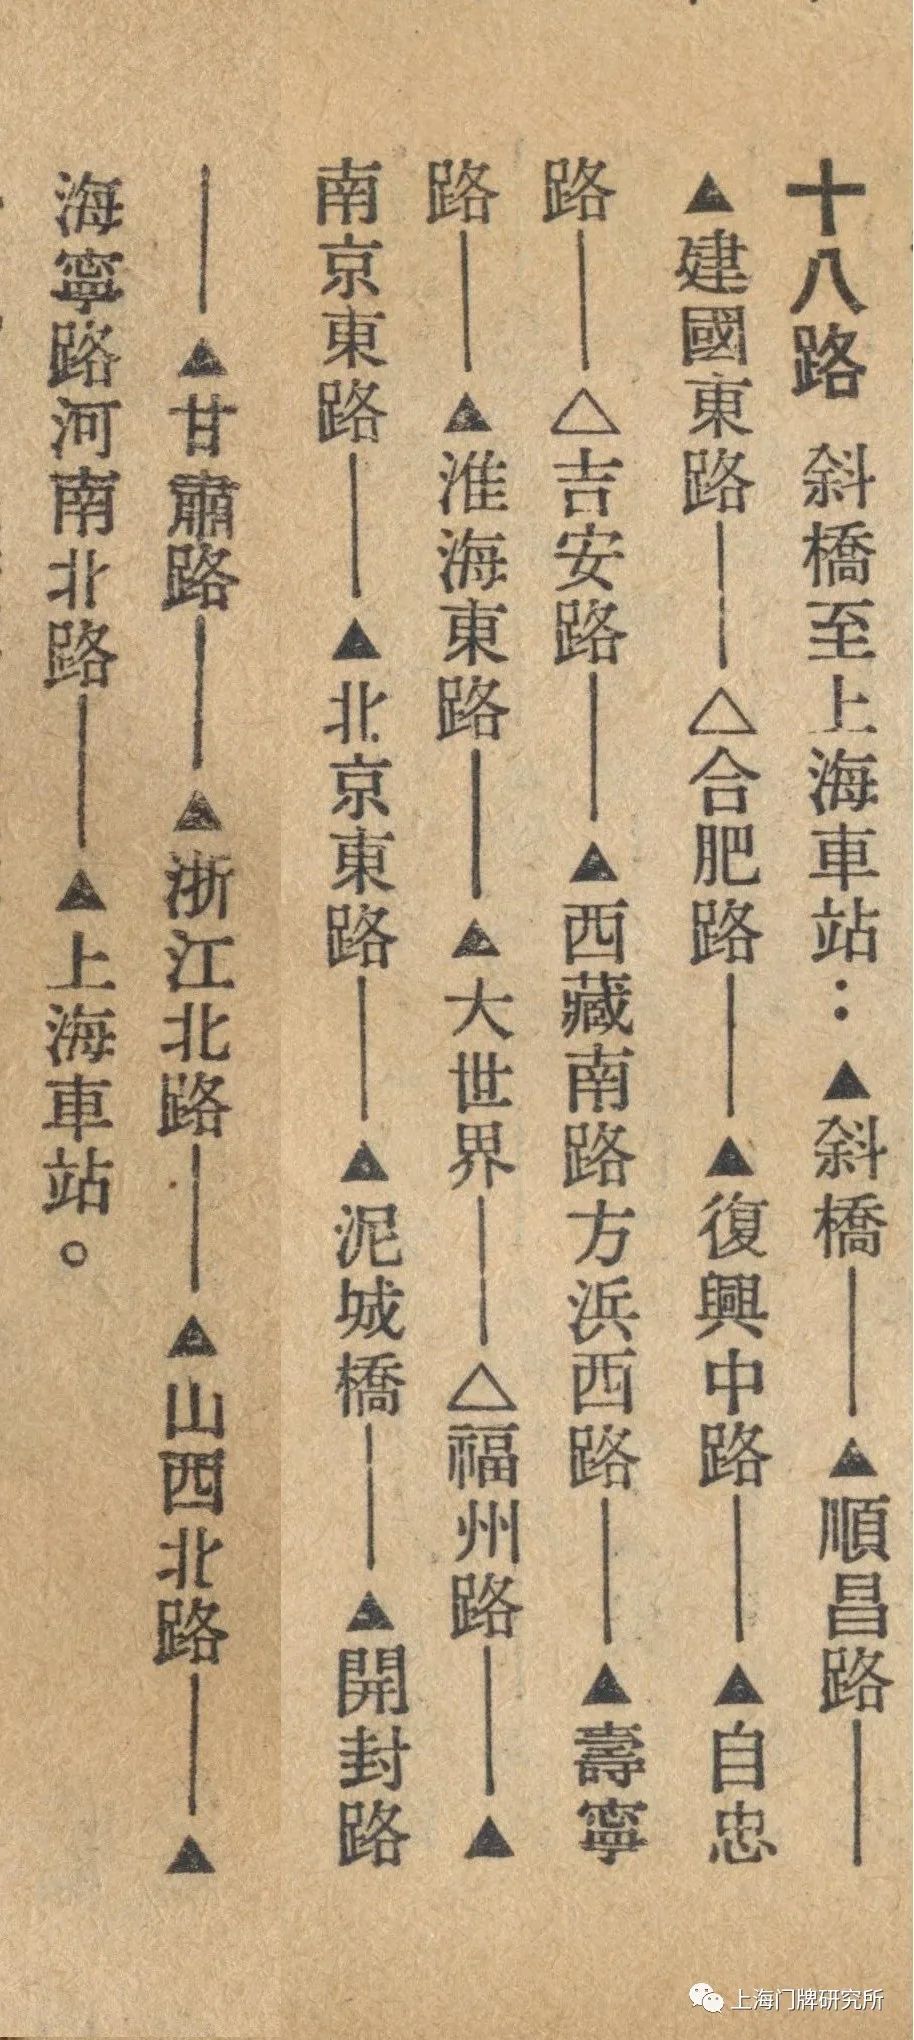 十八路 斜橋至上海車站：▲斜橋——▲順昌路——
▲建國東路——△合肥路——▲復興中路——▲自忠
路——△吉安路——▲西藏南路方浜西路——▲壽寧
路——▲淮海東路——▲大世界——△福州路——▲
南京東路——▲北京東路——▲泥城橋——▲開封路
——▲甘肅路——▲浙江北路——▲山西北路——▲
海寧路河南北路——▲上海車站。
上海门牌研究所